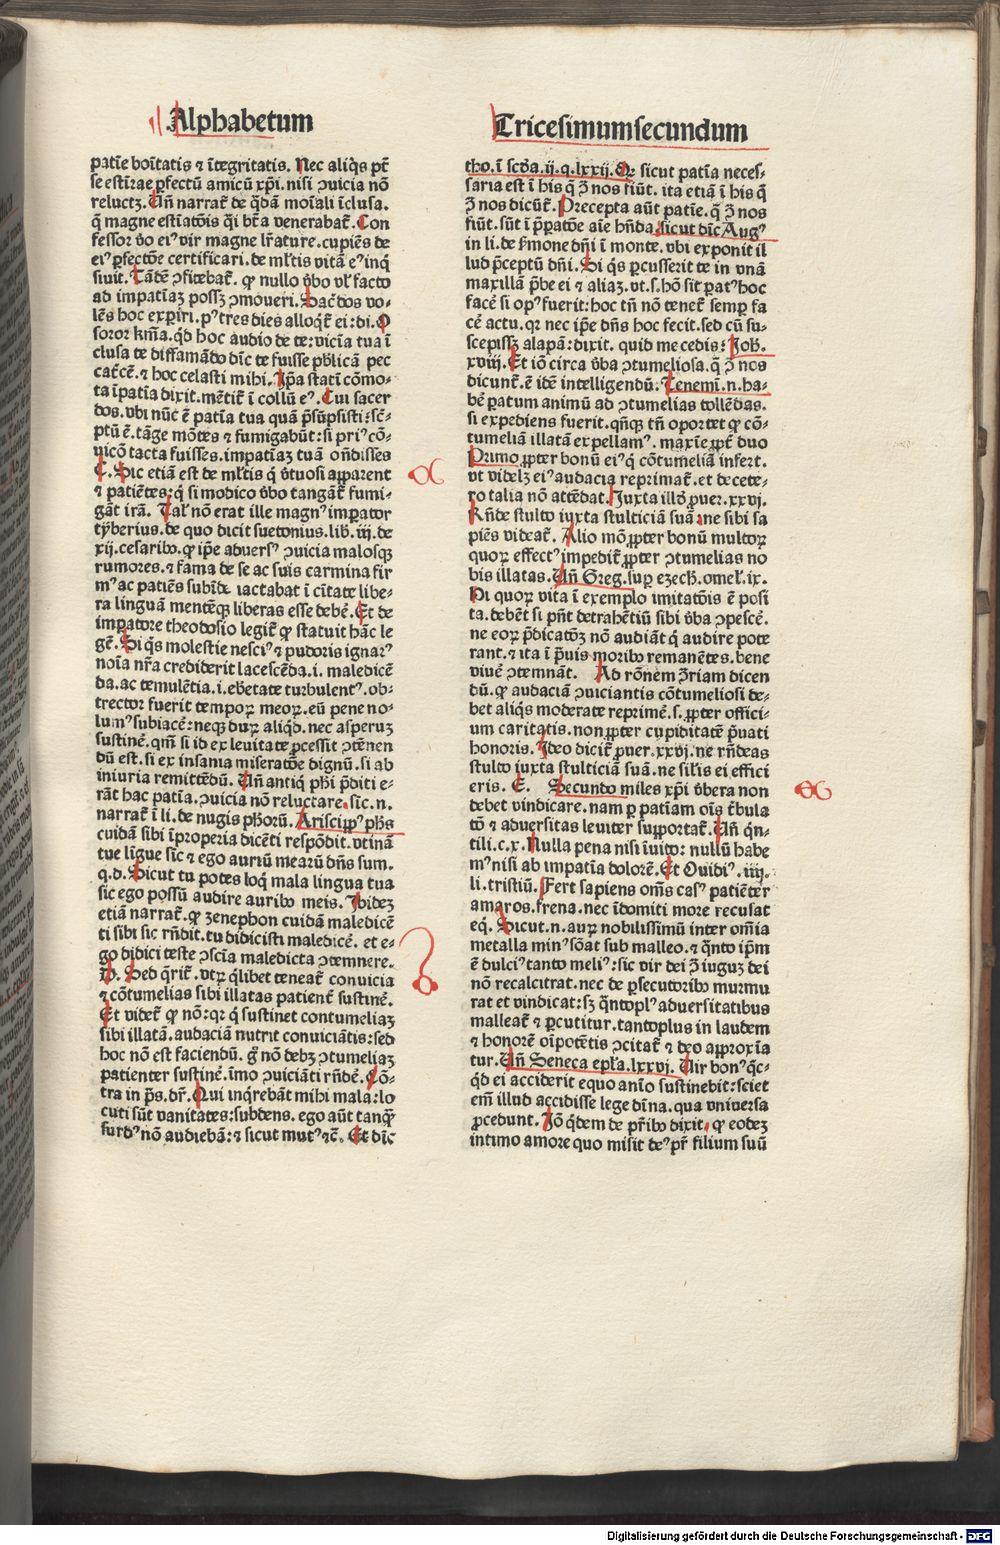 Alphabetum
patīe boītatis ⁊ ītegritatis. Nec aliq̄s pt̄
se estīare ꝑfectū amicū xp̄i. nisi ꝯuicia nō
reluctꝫ. Uñ narrat̄ de q̄dā moīali īclusa.
q̄ magne estīatōīs q̄i bt̄a venerabat̄. Con
fessor v̄o ei⁹ vir magne lr̄ature. cupiēs de
ei⁹ ꝑfectōe certificari. de ml̄tis vitā e⁹ inq̄
siuit. Tādē ꝯfitebat̄. ꝙ nullo v̄bo vl̄ facto
ad impatīaꝫ possꝫ ꝯmoueri. Sac̄dos vo-
lēs hoc exꝑiri. p⁹ tres dies alloqt̄ ei: di. O
soror km̄a. qd̄ hoc audio de te: vicīa tua ī
clusa te diffamādo dīc te fuisse pb̄licā pec
cat̄cē. ⁊ hoc celasti mihi. Ip̄a statī cōmo-
ta īpatīa dixit. mētit̄ ī collū e⁹. Cui sacer
dos. vbi nūc ē patīa tua quā p̄sūpsisti: sc̄-
ptū ē. tāge mōtes ⁊ fumigabūt: si pri⁹ cō-
uicō tacta fuisses. impatīaꝫ tuā oñdisses
C. Sic etiā est de ml̄tis q̄ v̄tuosi apparent
⁊ patiētes: q̄ si modico v̄bo tangāt̄ fumi-
gāt irā. Tal̄ nō erat ille magn⁹ imꝑator
tyberius. de quo dicit suetonius. lib̄. iij. de
xij. cesaribꝰ. ꝙ ip̄e aduers⁹ ꝯuicia malosqꝫ
rumores. ⁊ fama de se ac suis carmina fir
m⁹ ac patiēs subīde iactabat ī cītate libe-
ra linguā mentēqꝫ liberas esse debē̄. Et de
imꝑatore theodosio legit̄ ꝙ statuit hāc le
gē. Si q̄s molestie nesci⁹ ⁊ pudoris ignar⁹
noīa nr̄a crediderit lacescēda. i. maledicē
da. ac temulētia. i. eb̄etate turbulent⁹. ob-
trector fuerit tempoꝝ meoꝝ. eū pene no-
lum⁹ subiacē̄: neqꝫ duꝝ aliqd̄. nec asperuꝫ
sustinē̄. qm̄ si id ex leuitate ꝓcessit ꝯtēnen
dū est. si ex insania miseratōe dignū. si ab
iniuria remittēdū. Uñ antiq̄ ph̄i p̄diti e-
rāt hac patīa. ꝯuicia nō reluctare. sic. n.
narrat̄ ī li. de nugis ph̄oꝝ. Ariscipp⁹ ph̄s
cuidā sibi īproperia dicēti respōdit. vtinā
tue līgue sic̄ ⁊ ego auriū mearū dn̄s sum.
q. d. Sicut tu potes loq̄ mala lingua tua
sic ego possū audire auribꝰ meis. Ibideꝫ
etiā narrat̄. ꝙ ꝫenephon cuidā maledicē
ti sibi sic rn̄dit. tu didicisti maledicē̄. et e-
go didici teste ꝯscīa maledicta ꝯtemnere.
D. Sed q̄rit̄. vtꝝ q̄libet teneat̄ conuicia
⁊ cōtumelias sibi illatas patient̄ sustinē̄.
Et videt̄ ꝙ nō: qꝛ q̄ sustinet contumeliaꝫ
sibi illatā. audaciā nutrit conuiciātis: sed
hoc nō est faciendū. g̊ nō debꝫ ꝯtumeliaꝫ
patienter sustinē̄. īmo ꝯuiciāti rn̄dē̄. Cō-
tra in p̄s. dr̄. Qui inq̄rebāt mihi mala: lo
cuti sūt vanitates: subdens. ego aūt tanqꝫ̄
surd⁹ nō audiebā: ⁊ sicut mut⁹ ⁊c̄. Et dic̄
Tricesimumsecundum
tho. ī scd̄a. ij. q. lxxij. Qꝛ sicut patīa neces-
saria est ī his q̄ ꝯ̄ nos fiūt. ita etiā ī his q̄
ꝯ̄ nos dicūt̄. Precepta aūt patīe. q̄ ꝯ̄ nos
fiūt. sūt ī p̄ꝑatōe aīe hn̄da. sicut dīc Aug⁹
in li. de s̄mone dn̄i ī monte. vbi exponit il
lud p̄ceptū dn̄i. Si q̄s ꝑcusserit te in vnā
maxillā p̄be ei ⁊ aliaꝫ. vt. s. hō sit ꝑat⁹ hoc
facē̄ si op⁹ fuerit: hoc tn̄ nō tenet̄ semꝑ fa
cē̄ actu. qꝛ nec ip̄e dn̄s hoc fecit. sed cū su-
scepissꝫ alapā: dixit. quid me cedis: Joh̄.
xviij. Et iō circa v̄ba ꝯtumeliosa. q̄ ꝯ̄ nos
dicunt̄. ē idē intelligendū. Tenemī. n. ha-
bē̄ ꝑatum animū ad ꝯtumelias tollēdas.
si expediens fuerit. qn̄qꝫ tn̄ oportet ꝙ cō-
tumeliā illatā expellam⁹. maxīe ꝓpt̄ duo
Primo ꝓpter bonū ei⁹ q̄ cōtumeliā infert.
vt videlꝫ ei⁹ audacia reprimat̄. et de cete-
ro talia nō attēdat. Juxta illd̄ ꝓuer. xxvj.
Rn̄de stulto iuxta stulticiā suā. ne sibi sa
piēs videat̄. Alio mō ꝓpter bonū multoꝝ
quoꝝ effect⁹ impedit̄ ꝓpter ꝯtumelias no
bis illatas. Uñ Greg. suꝑ eꝫech. omel̄. ix.
Hi quoꝝ vita ī exemplo imitatōīs ē posi
ta. debēt si pn̄t detrahētiū sibi v̄ba ꝯpescē̄.
ne eoꝝ p̄dicatōꝫ nō audiāt q̄ audire pote
rant. ⁊ ita ī p̄uis moribꝰ remanētes. bene
viuē̄ ꝯtemnāt. Ad rōnem ꝯ̄riam dicen
dū. ꝙ audaciā ꝯuiciantis cōtumeliosi de-
bet aliq̄s moderate reprimē̄. s. ꝓpter offici-
um caritatis. non ꝓpter cupiditatē p̄uati
honoris. Ideo dicit̄ ꝓuer. xxvj. ne rn̄deas
stulto iuxta stulticiā suā. ne sil̄is ei effici
eris. E. Secundo miles xp̄i v̄bera non
debet vindicare. nam ꝑ patīam oīs t̄bula
tō ⁊ aduersitas leuiter supportat̄. Uñ q̄n-
tili. c. x. Nulla pena nisi īuito: nullū habe
m⁹ nisi ab impatīa dolorē. Et Ouidi⁹. iiij.
li. tristiū. Fert sapiens om̄s cas⁹ patiēter
amaros. frena. nec īdomiti more recusat
eq̄. Sicut. n. auꝝ nobilissimū inter om̄ia
metalla min⁹ sōat sub malleo. ⁊ q̄nto ip̄m
ē dulci⁹ tanto meli⁹: sic vir dei ꝯ̄ iuguꝫ dei
nō recalcitrat. nec de ꝑsecutoribꝰ murmu
rat et vindicat: sꝫ q̄ntopl⁹ aduersitatibus
malleat̄ ⁊ ꝑcutitur. tantoplus in laudem
⁊ honorē oīpotētis ꝯcitat̄ ⁊ deo approxīa
tur. Uñ Seneca epl̄a. lxxvj. Uir bon⁹ qc̄-
qd̄ ei acciderit equo anīo sustinebit: sciet
em̄ illud accidisse lege dīna. qua vniuersa
ꝓcedunt. Iō q̄dem de pr̄ibꝰ dixit. ꝙ eodeꝫ
intimo amore quo misit de⁹ pr̄ filium suū
Digitalisierung gefördert durch die Deutsche Forschungsgemeinschaft - DFG